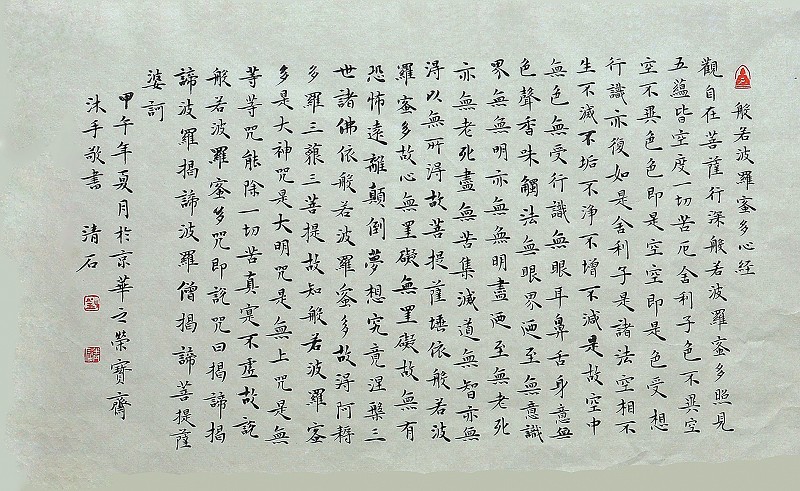 般若波羅蜜多心経
觀自在菩薩行深般若波羅蜜多照見
五蘊皆空度一切苦厄舍利子色不異空
空不異色色即是空空即是色受想
行識亦復如是舍利子是諸法空相不
生不滅不垢不淨不增不減是故空中
無色無受行識無眼耳鼻舌身意無
色聲香味觸法無眼界廼至無意識
界無無明亦無無明盡廼至無老死
亦無老死盡無苦集滅道無智亦無
得以無所得故菩提薩埵依般若波
羅蜜多故心無罣礙無罣礙故無有
恐怖遠離顛倒夢想究竟涅槃三
世諸佛依般若波羅蜜多故得阿耨
多羅三藐三菩提故知般若波羅蜜
多是大神咒是大明咒是無上咒是無
等等咒能除一切苦真寔不虛故說
般若波羅蜜多咒即說咒曰揭諦揭
諦波羅揭諦波羅僧揭諦菩提薩
婆訶
甲午年夏月於京華之榮寶齋
沐手敬書 清石